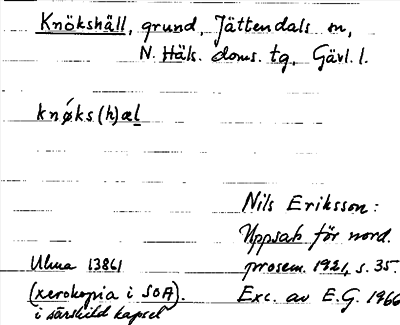 Knökshäll, grund, Jättendals sn,
N. Häls. doms. tg, Gävl. l.
knǿks(h)æl
Nils Eriksson:
Uppsats för nord.
Ulma 13861 prosem. 1921, s. 35.
(xerokopia i SOA). Exc. av E.G. 1966
i särskild kapsel